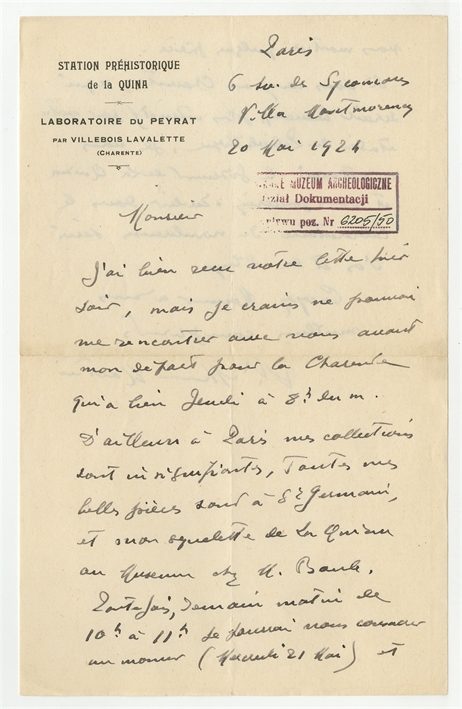 STATION PRÉHISTORIQUE
de la QUINA
LABORATOIRE DU PEYRAT
PAR VILLEBOIS LAVALETTE
(CHARENTE)
Paris
6 Av. des Sycomores
Villa Montmorency
20 Mai 1924
MUZEUM ARCHEOLOGICZNE
Dział Dokumentacji
poz. Nr 6205/50
Monsieur
J'ai bien reçu votre lettre hier
soir, mais je crains ne pouvoir
me rencontrer avec vous avant
mon départ pour la Charente
qui a lieu Jeudi à 8h du m.
D'ailleurs à Paris mes collections
sont insignifiantes, toutes mes
belles pièces sont à St Germain,
et mon squelette de La Quina
au Museum chez M. Boule.
Toutefois, demain matin de
10h à 11h je pourrai vous consacrer
un moment (Mercredi 21 Mai) et